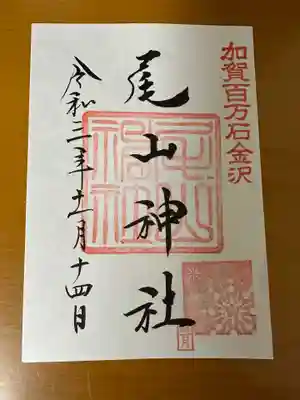 加賀百万石金沢
尾山神社
令和三年十一月十四日